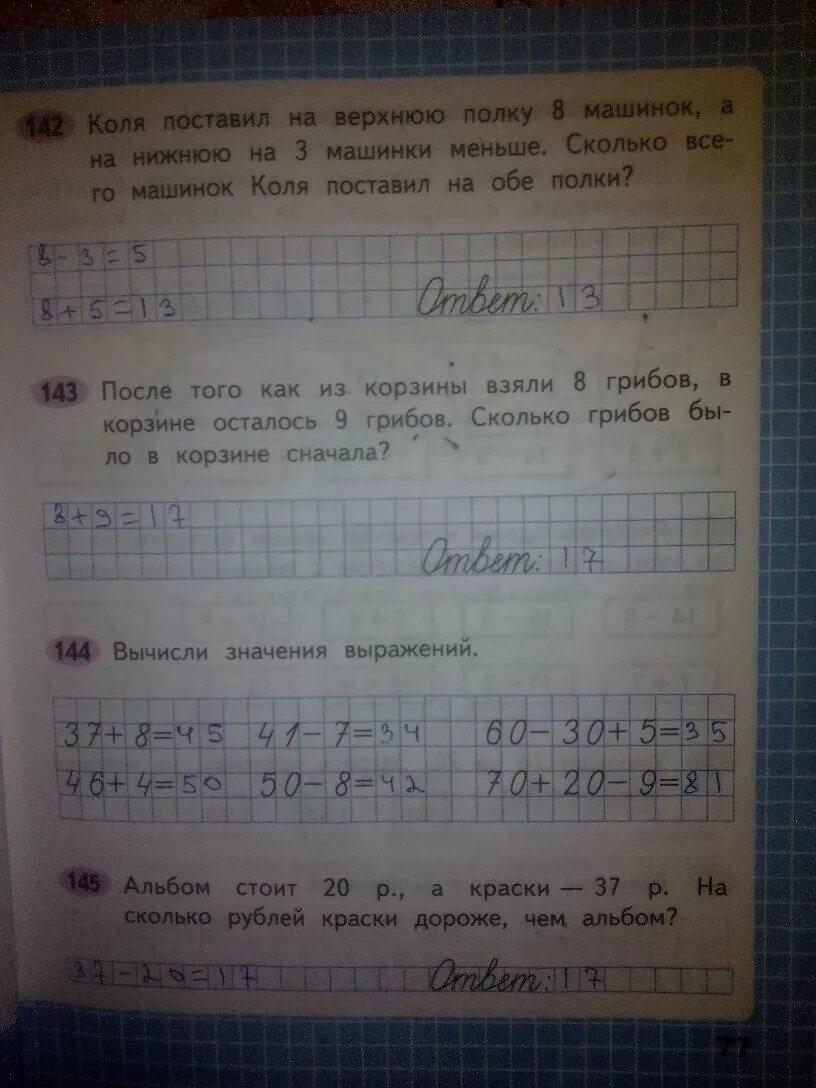 142 Коля поставил на верхнюю полку 8 машинок, а
на нижнюю на 3 машинки меньше. Сколько все-
го машинок Коля поставил на обе полки?
8-3=5
8+5=13 Ответ: 13
143 После того как из корзины взяли 8 грибов, в
корзине осталось 9 грибов. Сколько грибов бы-
ло в корзине сначала?
8+9=17
Ответ: 17
144 Вычисли значения выражений.
37+8=45 41-7=34 60-30+5=35
46+4=50 50-8=42 70+20-9=81
145 Альбом стоит 20 р., а краски — 37 р. На
сколько рублей краски дороже, чем альбом?
37-20=17 Ответ: 17
77